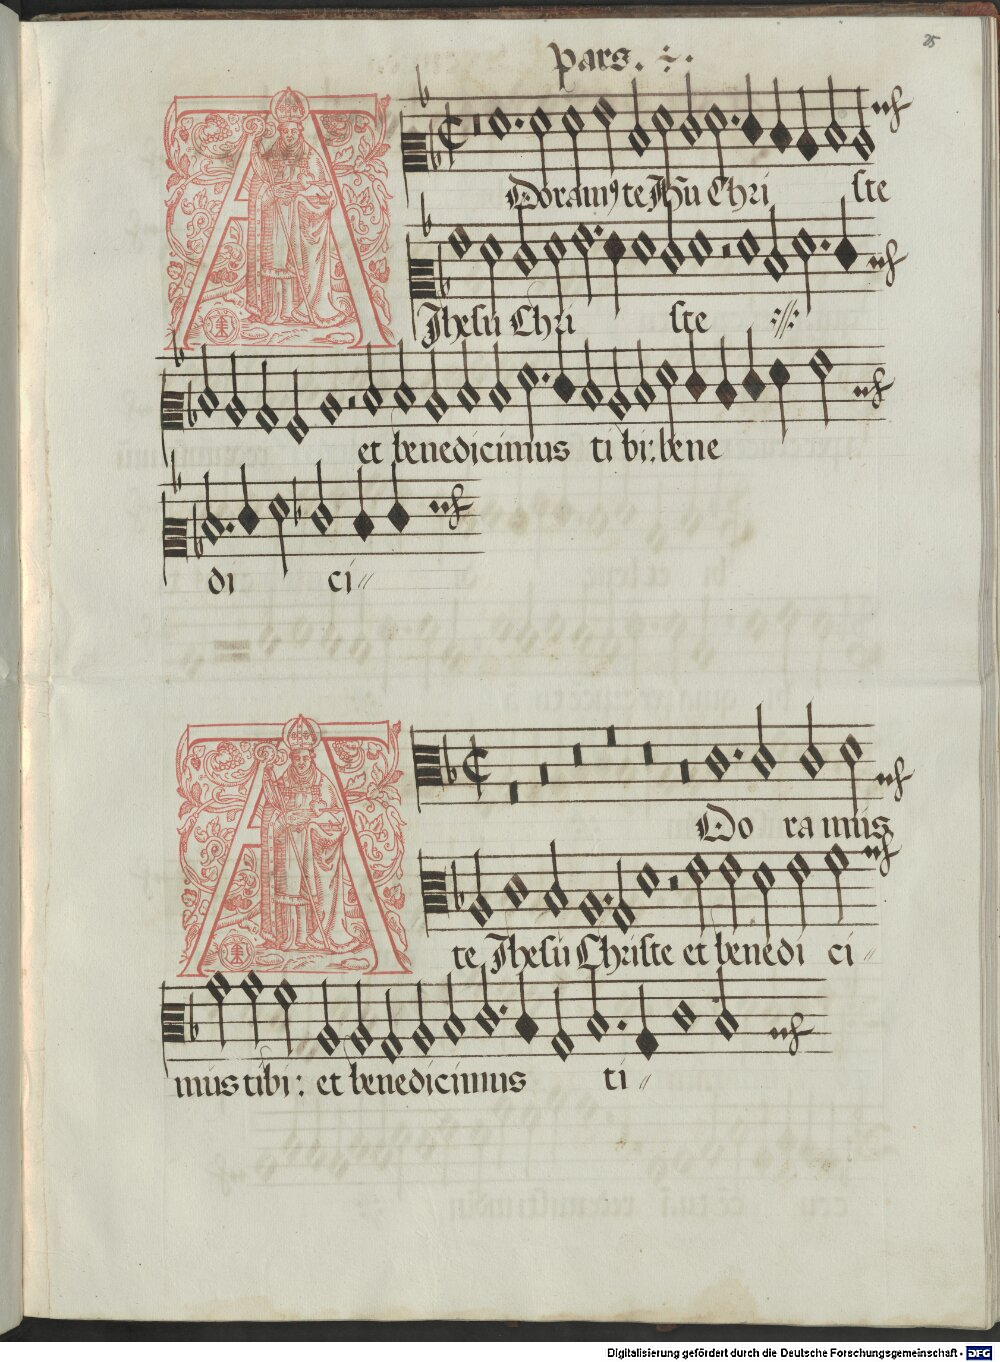 25
pars.
ADoram⁹ te Jhū Chri ste
Jhesu Chri ste
et benedicimus ti bi: bene
di ci
ADo ra mus
te Jhesu Christe et benedi ci
mus tibi: et benedicimus ti
Digitalisierung gefördert durch die Deutsche Forschungsgemeinschaft - DFG